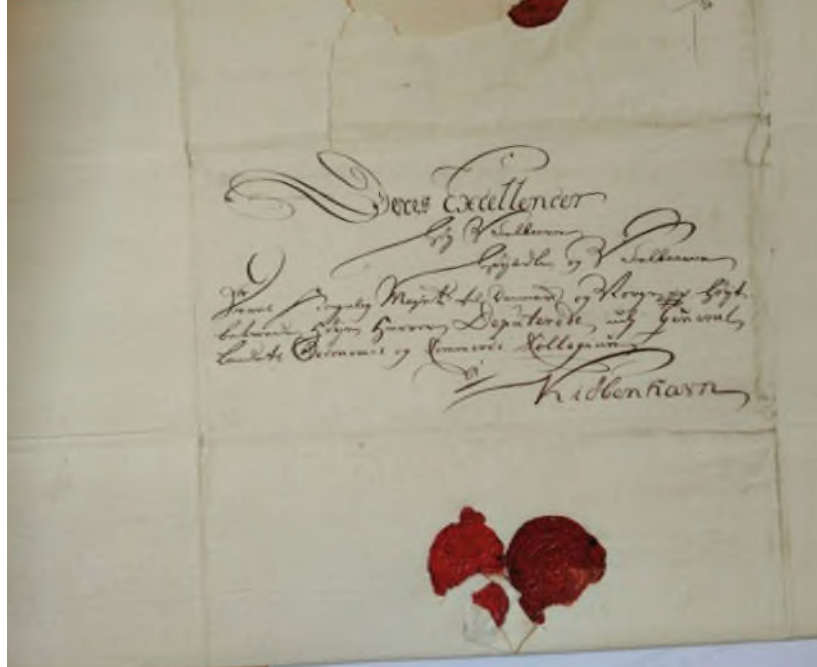 Deres Excellencer
Høy Velbaarne
Høyædle og Velbaarne
Kongelig Mayts til Danmark og Norge Høyt-
Herrer Deputerede udj General
Landets Oeconomie og Commerce Collegium
Kiøbenhavn